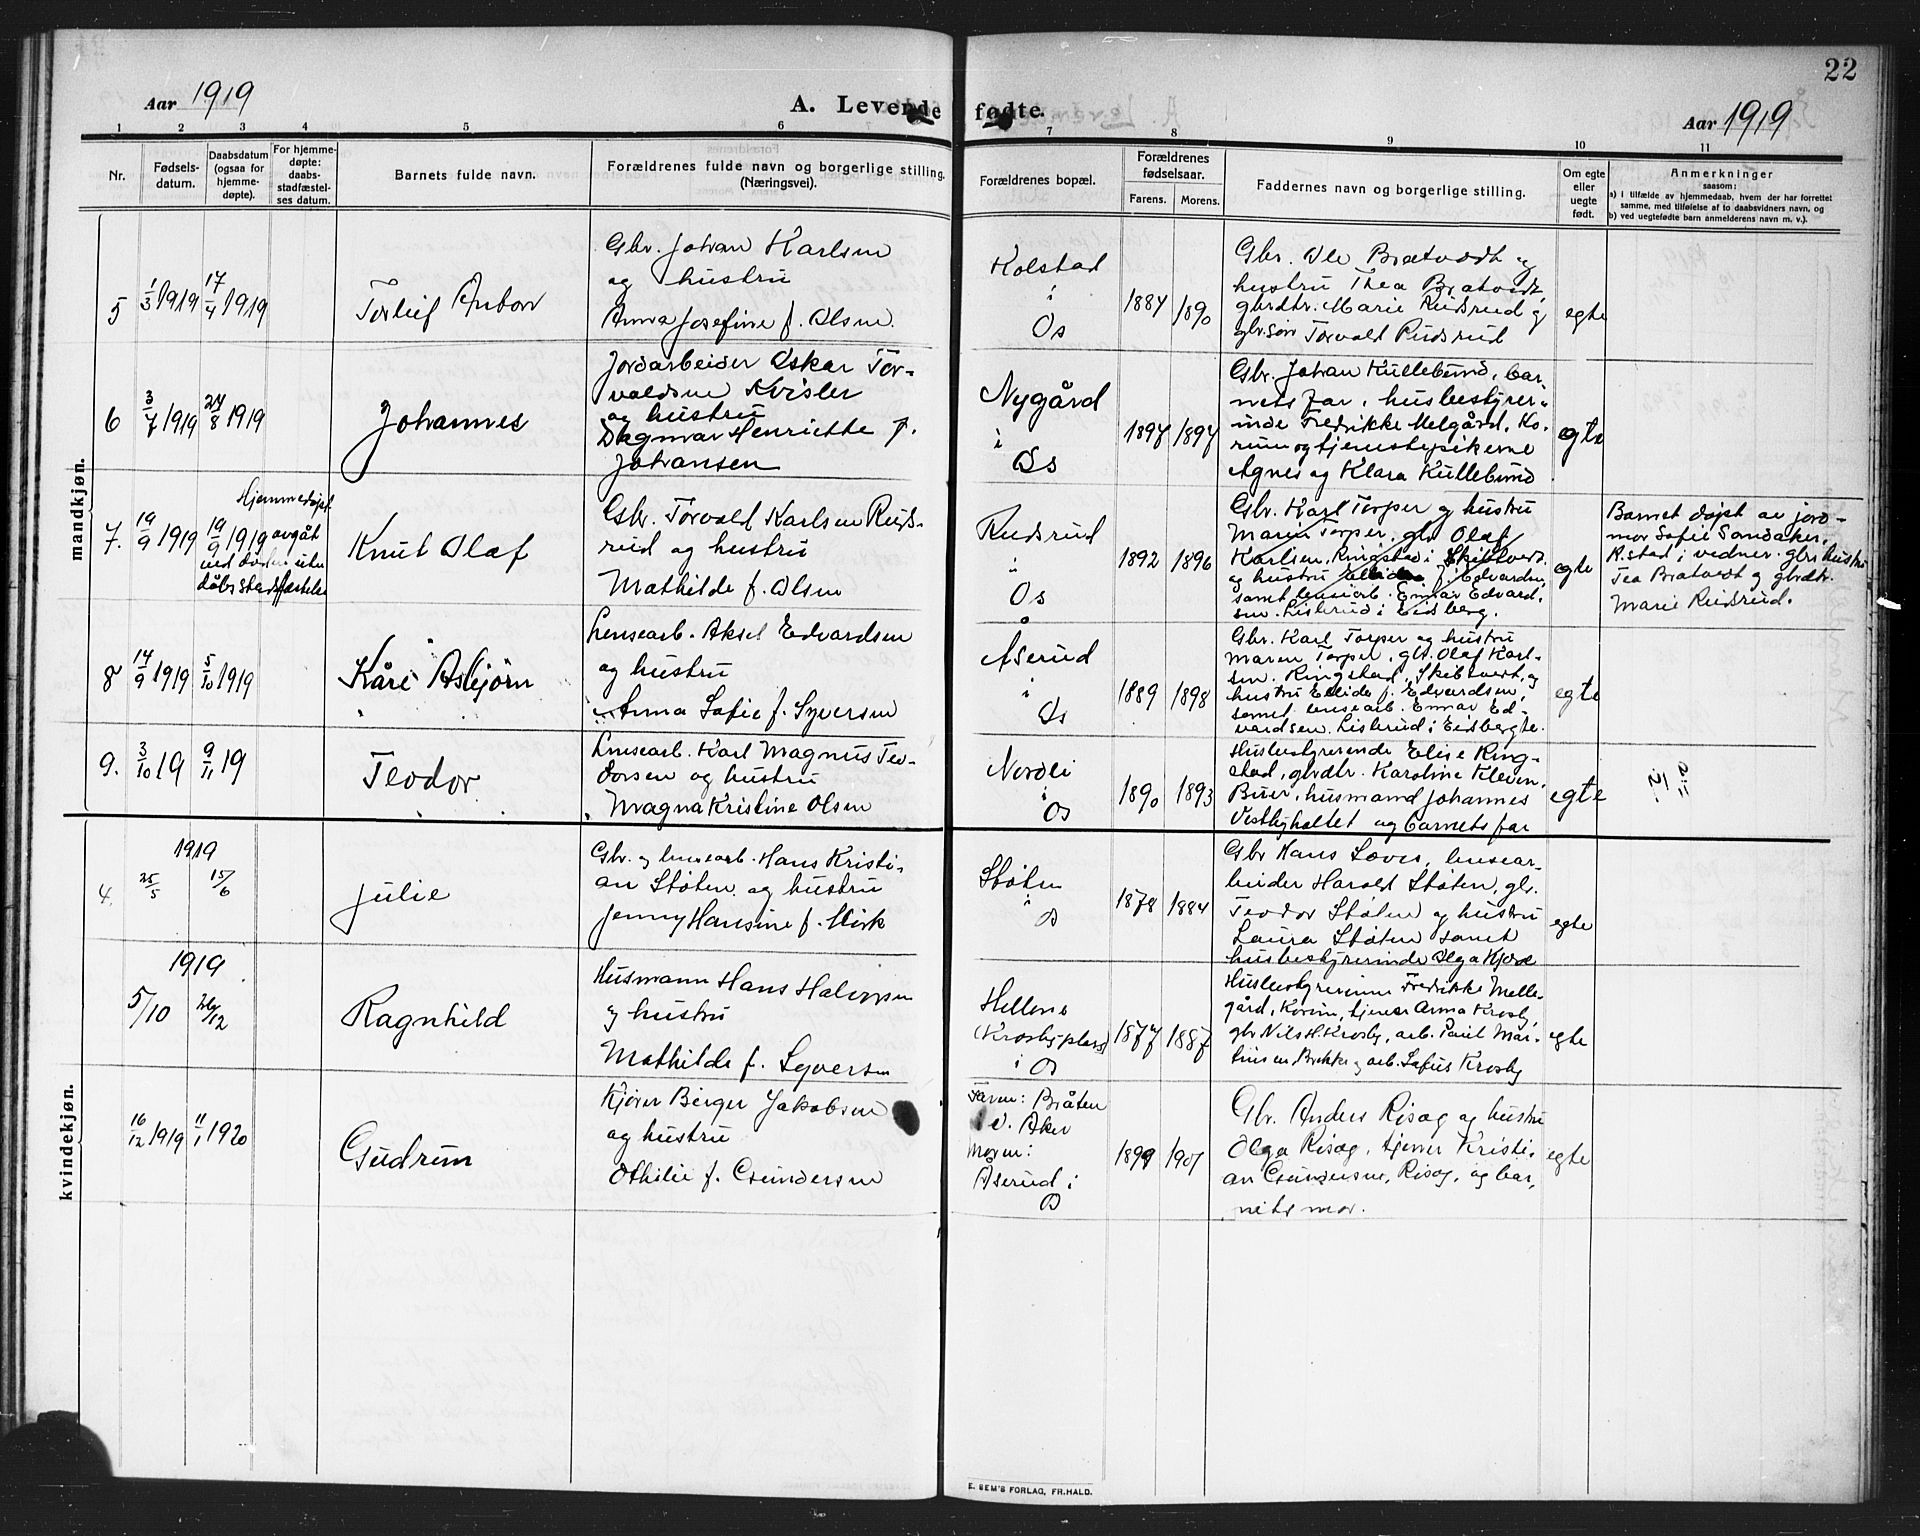 22
Aar 1919
A. Levende fødte.
Aar 1919
1 2 3 4 5 6 7 8 9 10 11
Nr.
Fødsels-
datum.
Daabsdatum
(ogsaa for
hjemme-
døpte).
For hjemme-
døpte:
daabs-
stadfæstel-
ses datum.
Barnets fulde navn.
Forældrenes fulde navn og borgerlige stilling.
(Næringsvei).
Forældrenes bopæl.
Forældrenes
fødselsaar.
Farens. Morens.
Faddernes navn og borgerlige stilling.
Om egte
eller
uegte
født.
Anmerkninger
saasom:
a) i tilfælde av hjemmedaab, hvem der har forrettet
samme, med tilføielse av to daabsvidners navn, og
b) ved uegtefødte barn anmelderens navn m. v.).
mandkjøn.
5
1/3 1919
17/4 1919
Torleif Anton
Gbr. Johan Karlsen
og hustru
Anna Josefine f. Olsen.
Kolstad
i
Os
1887
1890
Gbr. Ole Bratvedt og
hustru Thea Bratvedt,
gbrdtr. Marie Rudsrud og
gbr.søn Torvald Rudsrud
egte
6
3/7 1919
24/8 1919
Johannes
Jordarbeider Oskar Tor-
valdsen Kvisler
og hustru
Dagmar Henriette f.
Johansen
Nygård
i
Os
1897
1897
Gbr. Johan Kullebund, bar-
nets far, husbestyrer-
inde Fredrikke Melgård, Ko-
rum og tjenestepikerne
Agnes og Klara Kullebund
egte
7.
19/9 1919
19/9 1919
Hjemmedøpt
avgåt
ved døden uten
dåbsstadfæstelse
Knut Olaf
Gbr. Torvald Karlsen Ruds-
rud og hustru
Mathilde f. Olsen
Rudsrud
i
Os
1892
1896
Gbr. Karl Torper og hustru
Maren Torper, gbr. Olaf
Karlsen, Ringstad i Skibtvedt
og hustru Ellida f. Edvardsen,
samt lensearb. Einar Edvard-
sen. Lislerud i Eidsberg.
egte
Barnet døpt av jord-
mor Sofie Sandaker,
R.stad; vedner. gbr.hustru
Tea Bratvedt og gbrdtr.
Marie Rudsrud.
8
14/9 1919
5/10 1919
Kåre Asbjørn
Lensearb. Aksel Edvardsen
og hustru
Anna Sofie f. Syversen
Åserud
i
Os
1889
1898
Gbr. Karl Torper og hustru
Maren Torper, gbr. Olaf Karl-
sen. Ringstad, Skibtvedt, og
hustru Ellida f. Edvardsen,
samt lensearb. Einar Ed-
vardsen Lislerud i Eidsberg
egte.
9.
3/10 19
9/11 19
Teodor
Lensearb. Karl Magnus Teo-
dorsen og hustru
Magna Kristine Olsen
Nordli
i
Os
1890
1893
Husbestyrerinde Elise Ring-
stad, gbrdtr. Karoline Kleven,
Buer, husmand Johannes
Vestbyhaltet og barnets far
egte
kvindekjøn.
4.
1919
25/5
15/6
Julie
Gbr. og lensearb. Hans Kristi-
an Støten og hustru
Jenny Hansine f. Mirk
Støten
i
Os
1878
1884
Gbr Hans Sæves, lensear-
beider Harald Støten, gbr.
Teodor Støten og hustru
Laura Støten samt
husbestyrerinde Olga Kjos
egte
1919
5/10
26/12
Ragnhild
Husmann Hans Halvorsen
og hustru
Mathilde f. Syversen
Hellene
(Krosbyplass)
i Os
1877
1887
Husbestyrerinne Fredrikke Melle-
gård, Korum, tjener Anna Krosby,
gbr Nils H. Krosby, arb. Paul Mar-
tinsen Brekke og arb. Sofus Krosby
egte
16/12 1919
11/1 1920
Gudrun
Kjører Birger Jakobsen
og hustru
Othilie f. Gundersen
Faren: Bråten
V. Aker
Moren:
Åserud i
Os
1899
1901
Gbr. Anders Risæg og hustru
Olga Risæg, tjener Kristi-
an Gundersen, Risæg, og bar-
nets mor.
egte
E. SEM'S FORLAG, FR.HALD.